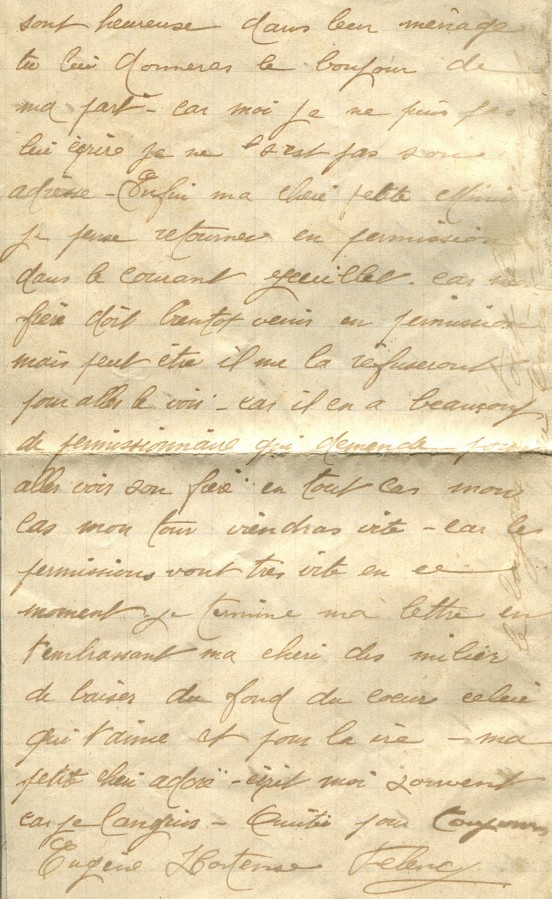 sont heureuse dans leur ménage
tu lui donneras le bonjour de
ma part - car moi je ne puis pas
lui ecrire je ne s'est pas son
adresse - Enfin ma cheri petite
je pense retourner en permission
dans le courant Jeuillet. car mon
frère doit bientot venir en permission
mais peut être il me la réfuseront
pour aller le voir - car il en a beaucoup
de permissionnaire qui demande pour
aller voir son frère en tout cas mon
cas mon tour viendras vite - car les
permissions vont tres vite en ce
moment je termine ma lettre en
t'embrassant ma cheri des milier
de baiser du fond du coeur celui
qui t'aime et pour la vie - ma
petite cheri adoré - ecrit moi souvent
car je languis - pour toujours
Eugène Hortense Felenc